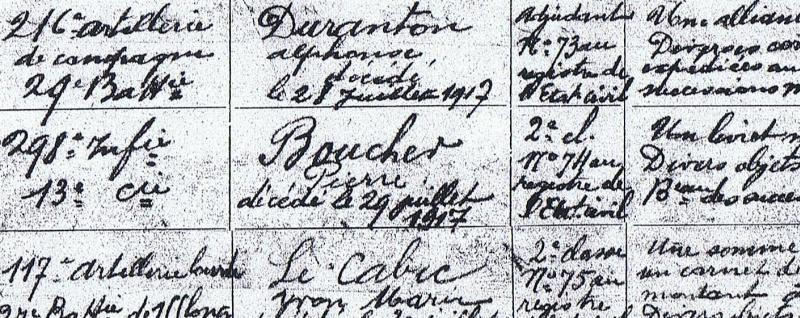 216e artillerie
de campagne
29e Battie
Duranton
alphonse
décédé
le 28 Juillet 1917
Adjudant
No 73 au
registre de
l'Etat civil
Une allian
Diverses
expédiées au
successions
298e Infie
13e Cie
Boucher
Pierre
décédé le 29 juillet
1917
2e cl.
No 74 au
registre de
l'Etat civil
Un livret
Divers objets
Beau des succe
117e artillerie lourde
Battie
Le Cabic
Yvon Marie
2e classe
No 75 au
registre
Une somme
un carnet de
montant
Divers